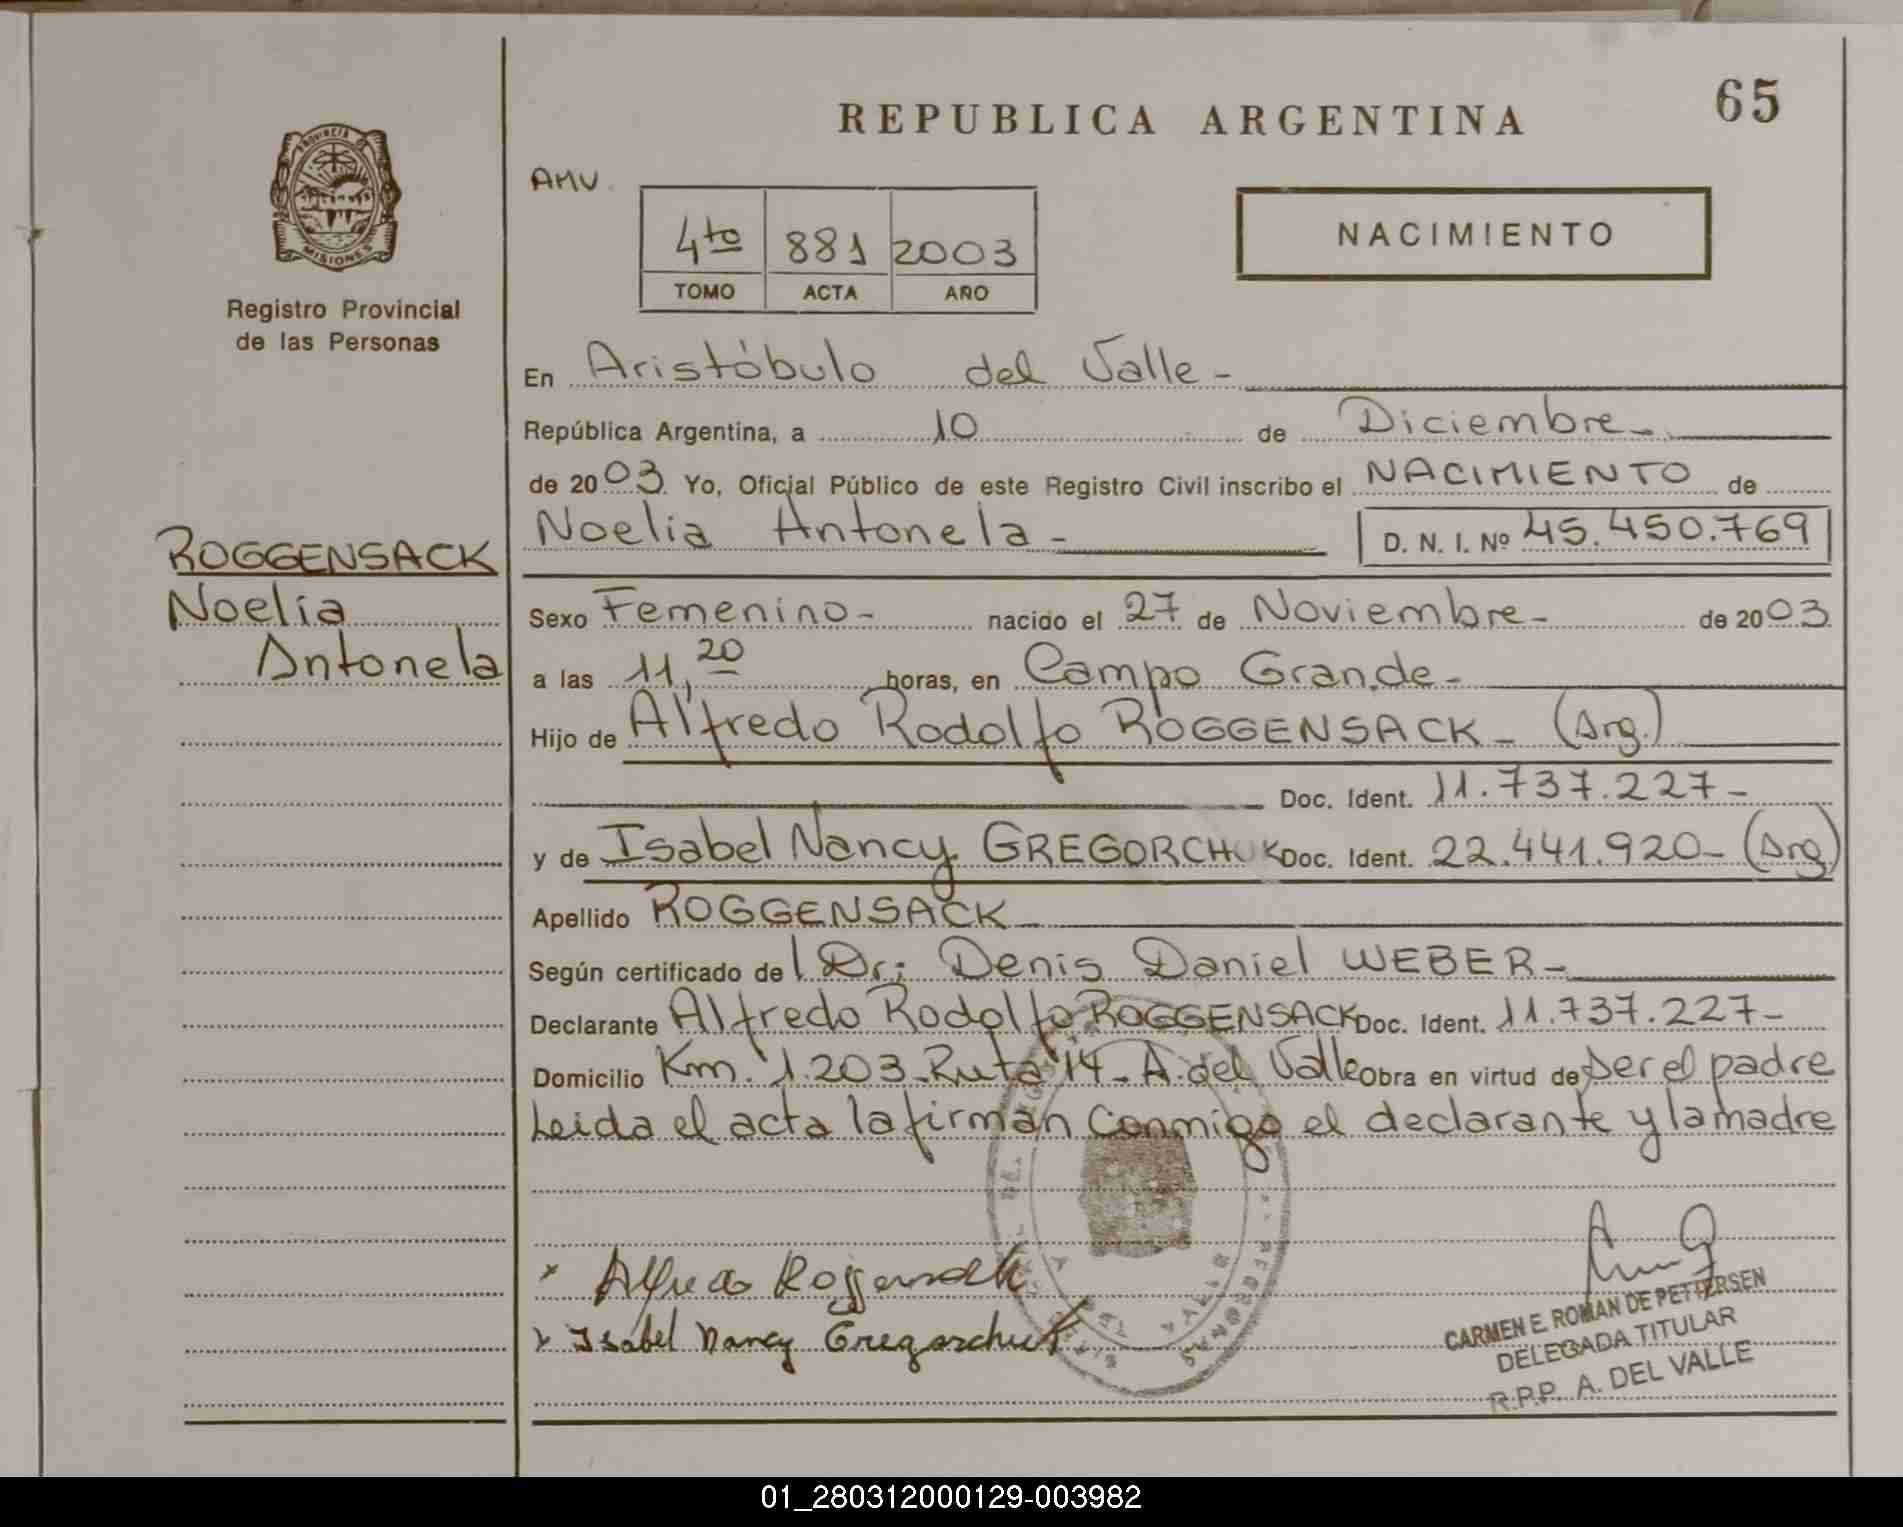 REPUBLICA ARGENTINA
65
PROVINCIA DE
MISIONES
Registro Provincial
de las Personas
AMV.
4to 881 2003
TOMO ACTA AÑO
NACIMIENTO
En Aristóbulo del Valle -
República Argentina, a 10 de Diciembre -
de 2003. Yo, Oficial Público de este Registro Civil inscribo el NACIMIENTO de
Noelia Antonela - D. N. I. Nº 45.450.769
ROGGENSACK
Noelia
Antonela
Sexo Femenino - nacido el 27 de Noviembre - de 2003
a las 11,20 horas, en Campo Grande -
Hijo de Alfredo Rodolfo ROGGENSACK - (Arg.)
Doc. Ident. 11.737.227 -
y de Isabel Nancy GREGORCHUK Doc. Ident. 22.441.920 - (Arg.)
Apellido ROGGENSACK -
Según certificado de l Dr: Denis Daniel WEBER -
Declarante Alfredo Rodolfo ROGGENSACK Doc. Ident. 11.737.227 -
Domicilio Km. 1.203 - Ruta 14 - A. del Valle Obra en virtud de ser el padre
Leida el acta la firman conmigo el declarante y la madre
x Alfredo Roggensack
x Isabel Nancy Gregorchuk
CARMEN E. ROMAN DE PETTERSEN
DELEGADA TITULAR
R.P.P. A. DEL VALLE
01_280312000129-003982